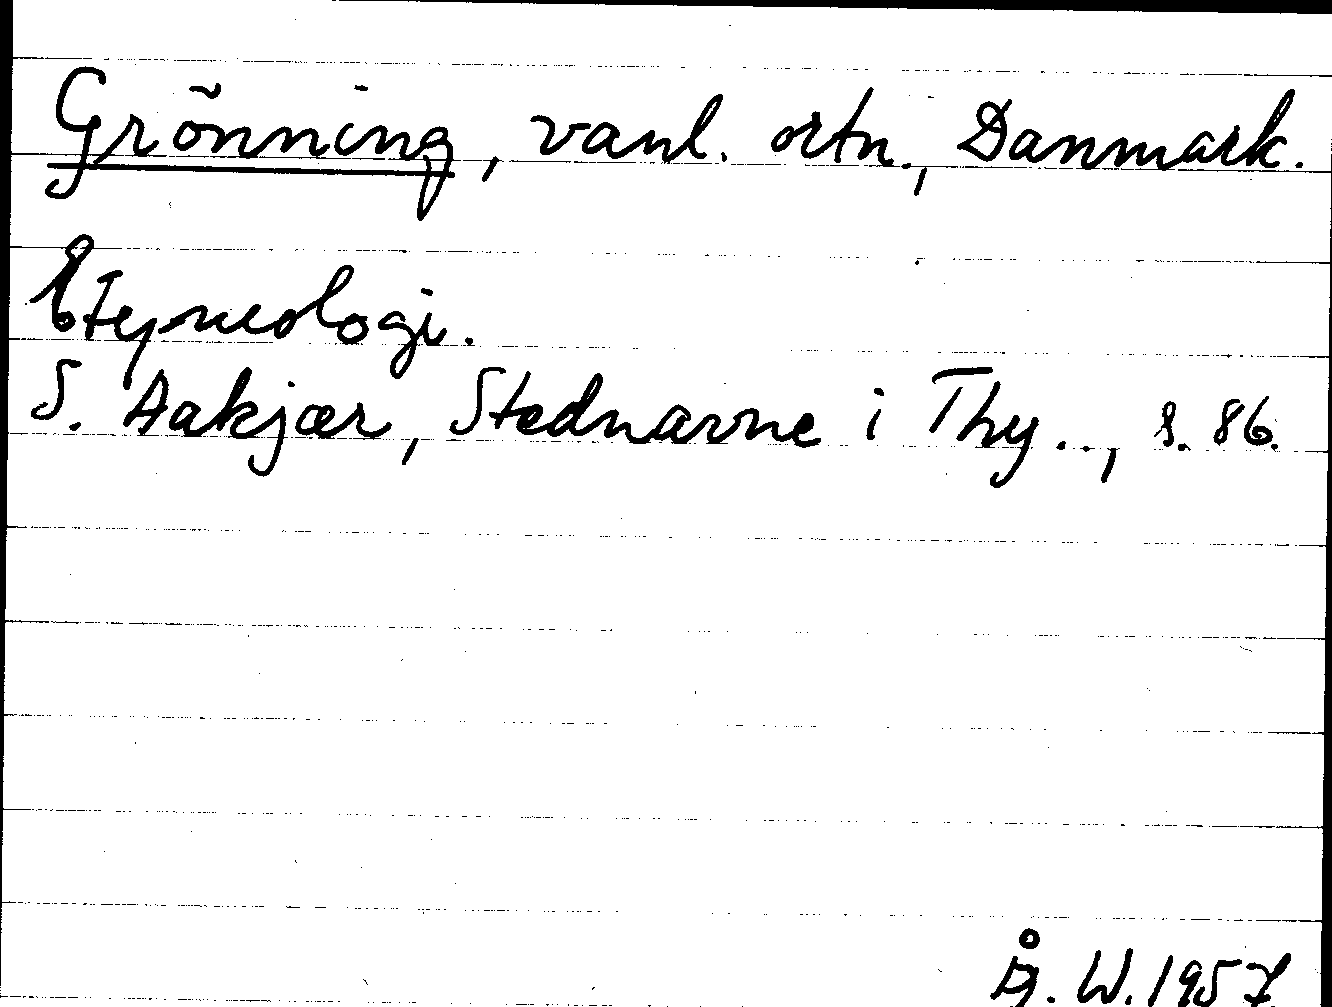 Grönning, vanl. ortn., Danmark.
Etymologi.
S. Aakjær, Stednavne i Thy.., s. 86.
Å. W. 1957